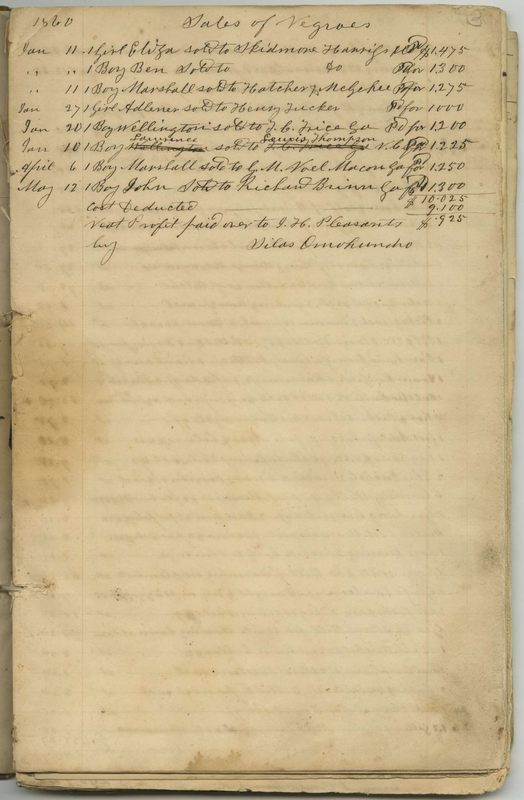 1860 Sales of Negroes 3
Jan 11 1 Girl Eliza sold to Skidmore Harris Pd for $1.475
" " 1 Boy Ben Sold to Do Pd for 1300
" 11 1 Boy Marshall sold to Hatcher & McGehee Pd for 1.275
Jan 27 1 Girl sold to Henry Tucker Pd for 1000
Jan 20 1 Boy Wellington sold to J. C. Frice Ga Pd for 1.200
Lawrence Lewis Thompson
Jan 10 1 Boy Wellington sold to N. C. Pd for 1.225
April 6 1 Boy Marshall sold to G. M. Noel Macon Ga Pd for 1.250
May 12 1 Boy John Sold to Richard Brinn Ga Pd for 1.300
$ 10.025
Cost Deducted 9.100
Neat Profit paid over to J. H. Pleasants $ .925
by Silas Omohundro